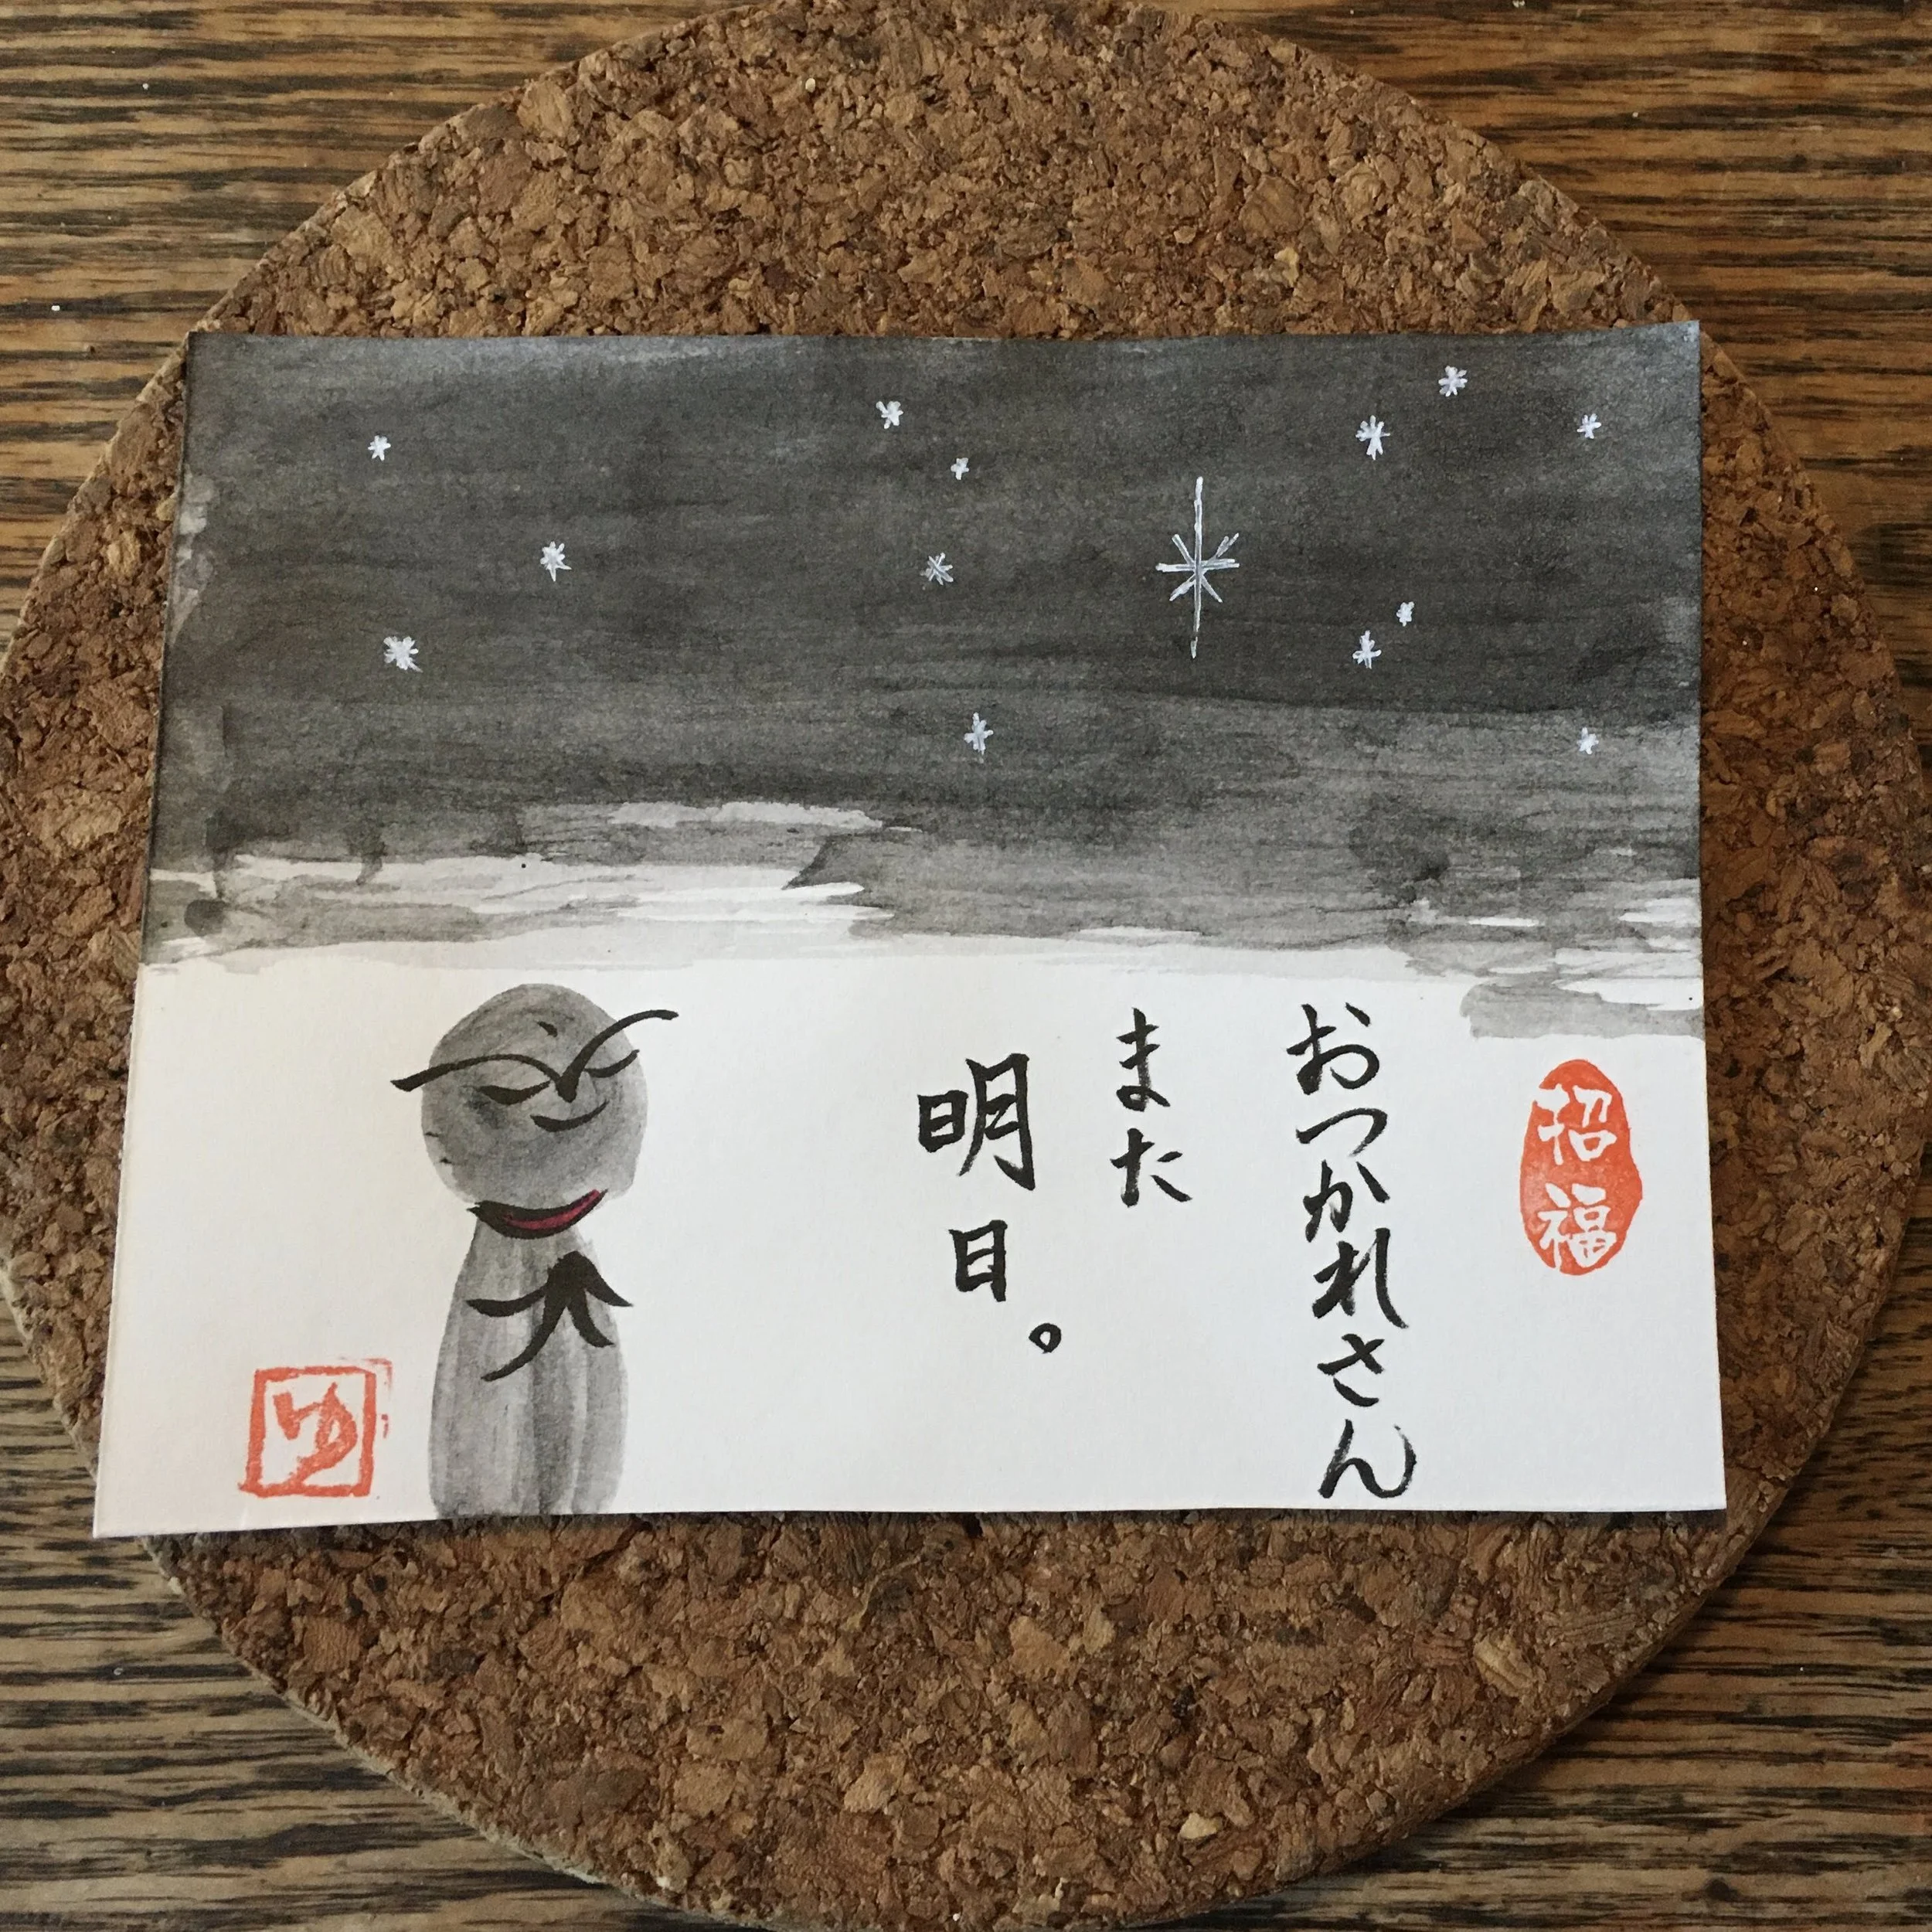 招福
おつかれさん
また
明日。
ゆ